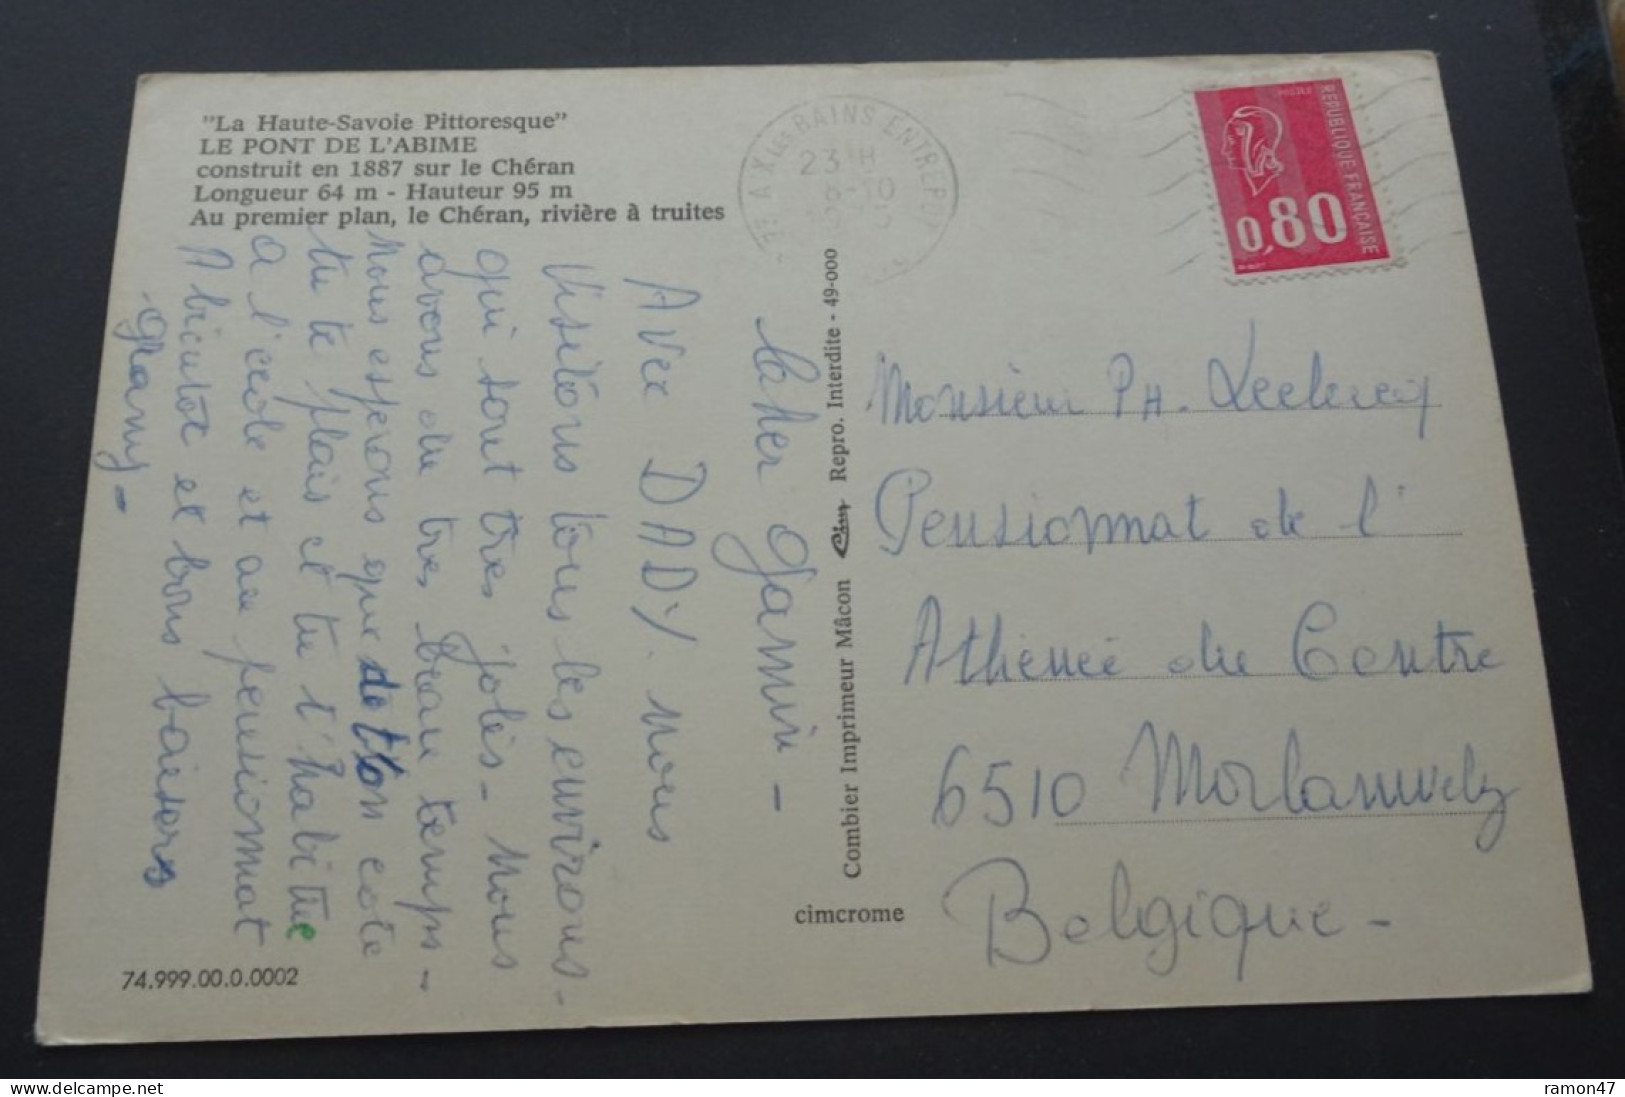 "La Haute-Savoie Pittoresque"
LE PONT DE L'ABIME
construit en 1887 sur le Chéran
Longueur 64 m - Hauteur 95 m
Au premier plan, le Chéran, rivière à truites
AIX les BAINS ENTREPOT
23 H
6-10
REPUBLIQUE FRANÇAISE
0,80
gamin -
Avec DADY. nous
Visitons tous les environs -
qui sont très jolis - nous
avons du tres beau temps -
nous esperons que de ton coté
tu te plais et tu t'habitue
a l'ecole et au pensionnat
A bientôt et bons baisers
grany -
Combier Imprimeur Mâcon Cim Repro. Interdite - 49-000
cimcrome
Monsieur PH. Leclercq
Pensionnat de l'
Athenée du Centre
6510 Morlanwelz
Belgique -
74.999.00.0.0002
delcampe.net
ramon47